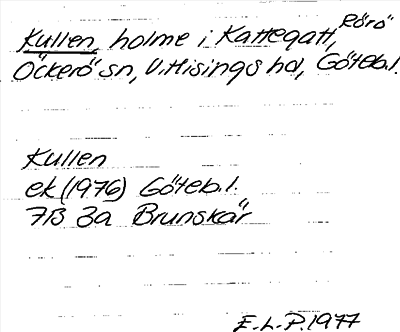 Kullen, holme i Kattegatt, Rörö
Öckerö sn, V. Hisings hd, Göteb. l.
Kullen
ek (1976) Göteb. l.
7B 3a Brunskär
E.L.P. 1977